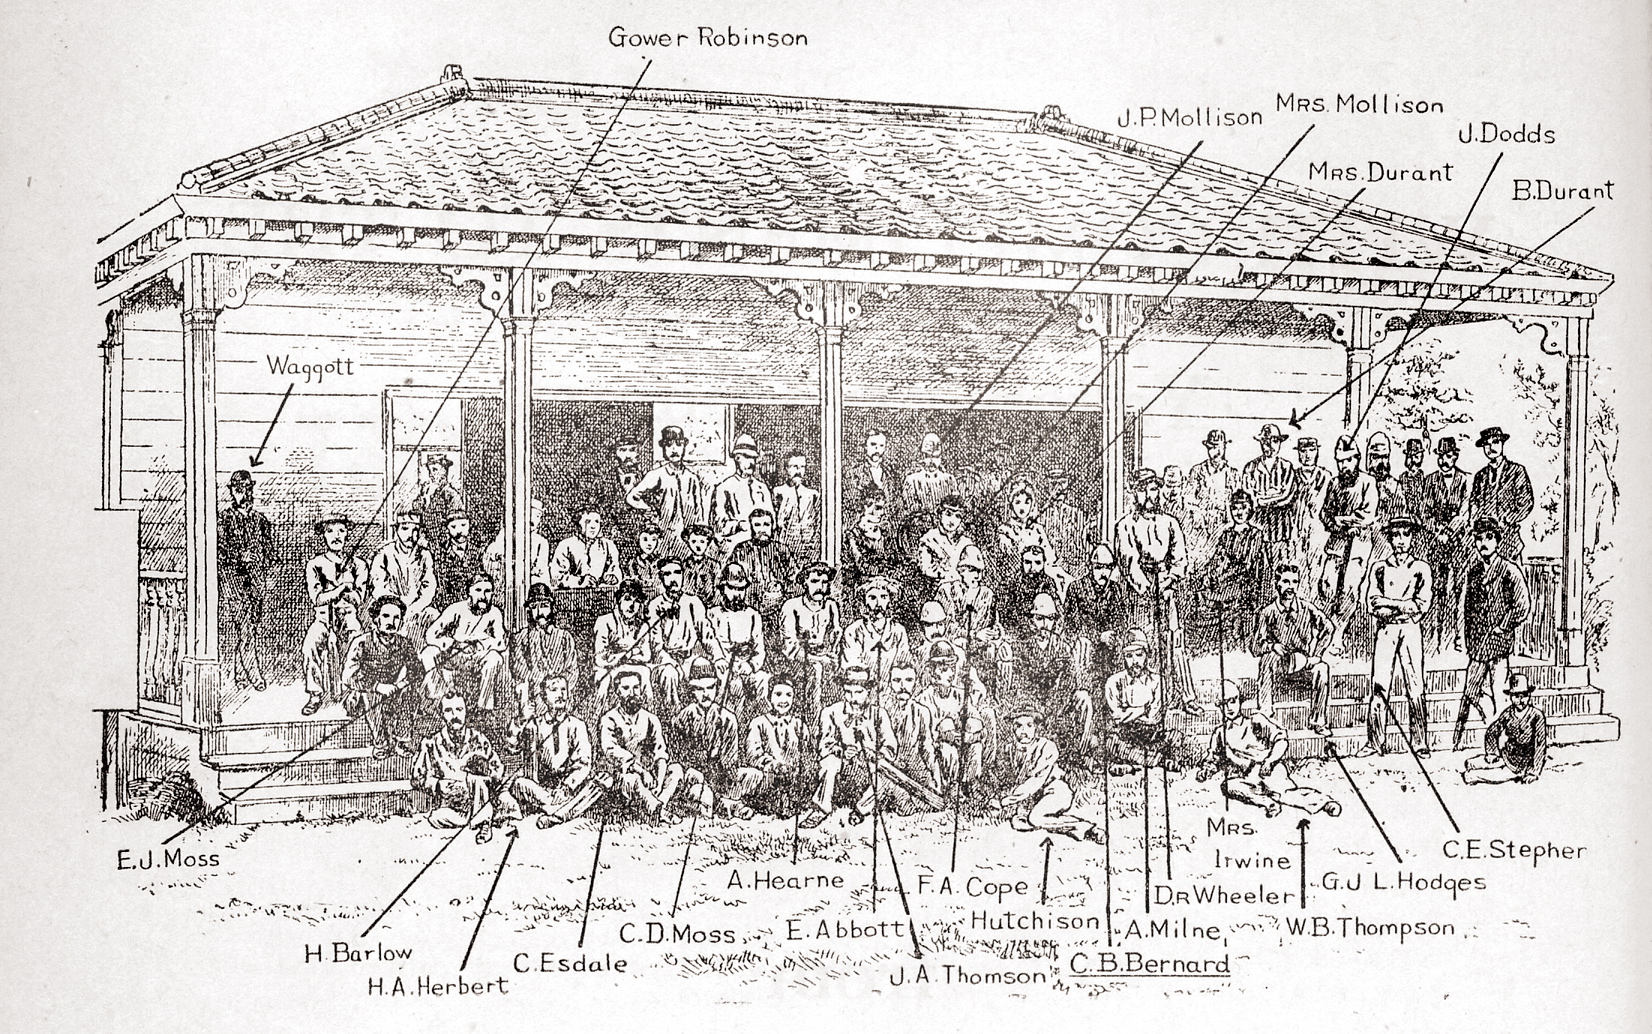 Gower Robinson
J.P. Mollison
Mrs. Mollison
J. Dodds
Mrs. Durant
B. Durant
Waggott
E.J. Moss
H. Barlow
H.A. Herbert
C. Esdale
C.D. Moss
A. Hearne
E. Abbott
J.A. Thomson
F.A. Cope
Hutchison
C.B. Bernard
A. Milne
Dr Wheeler
Mrs.
Irwine
W.B. Thompson
G.J L. Hodges
C.E. Stepher